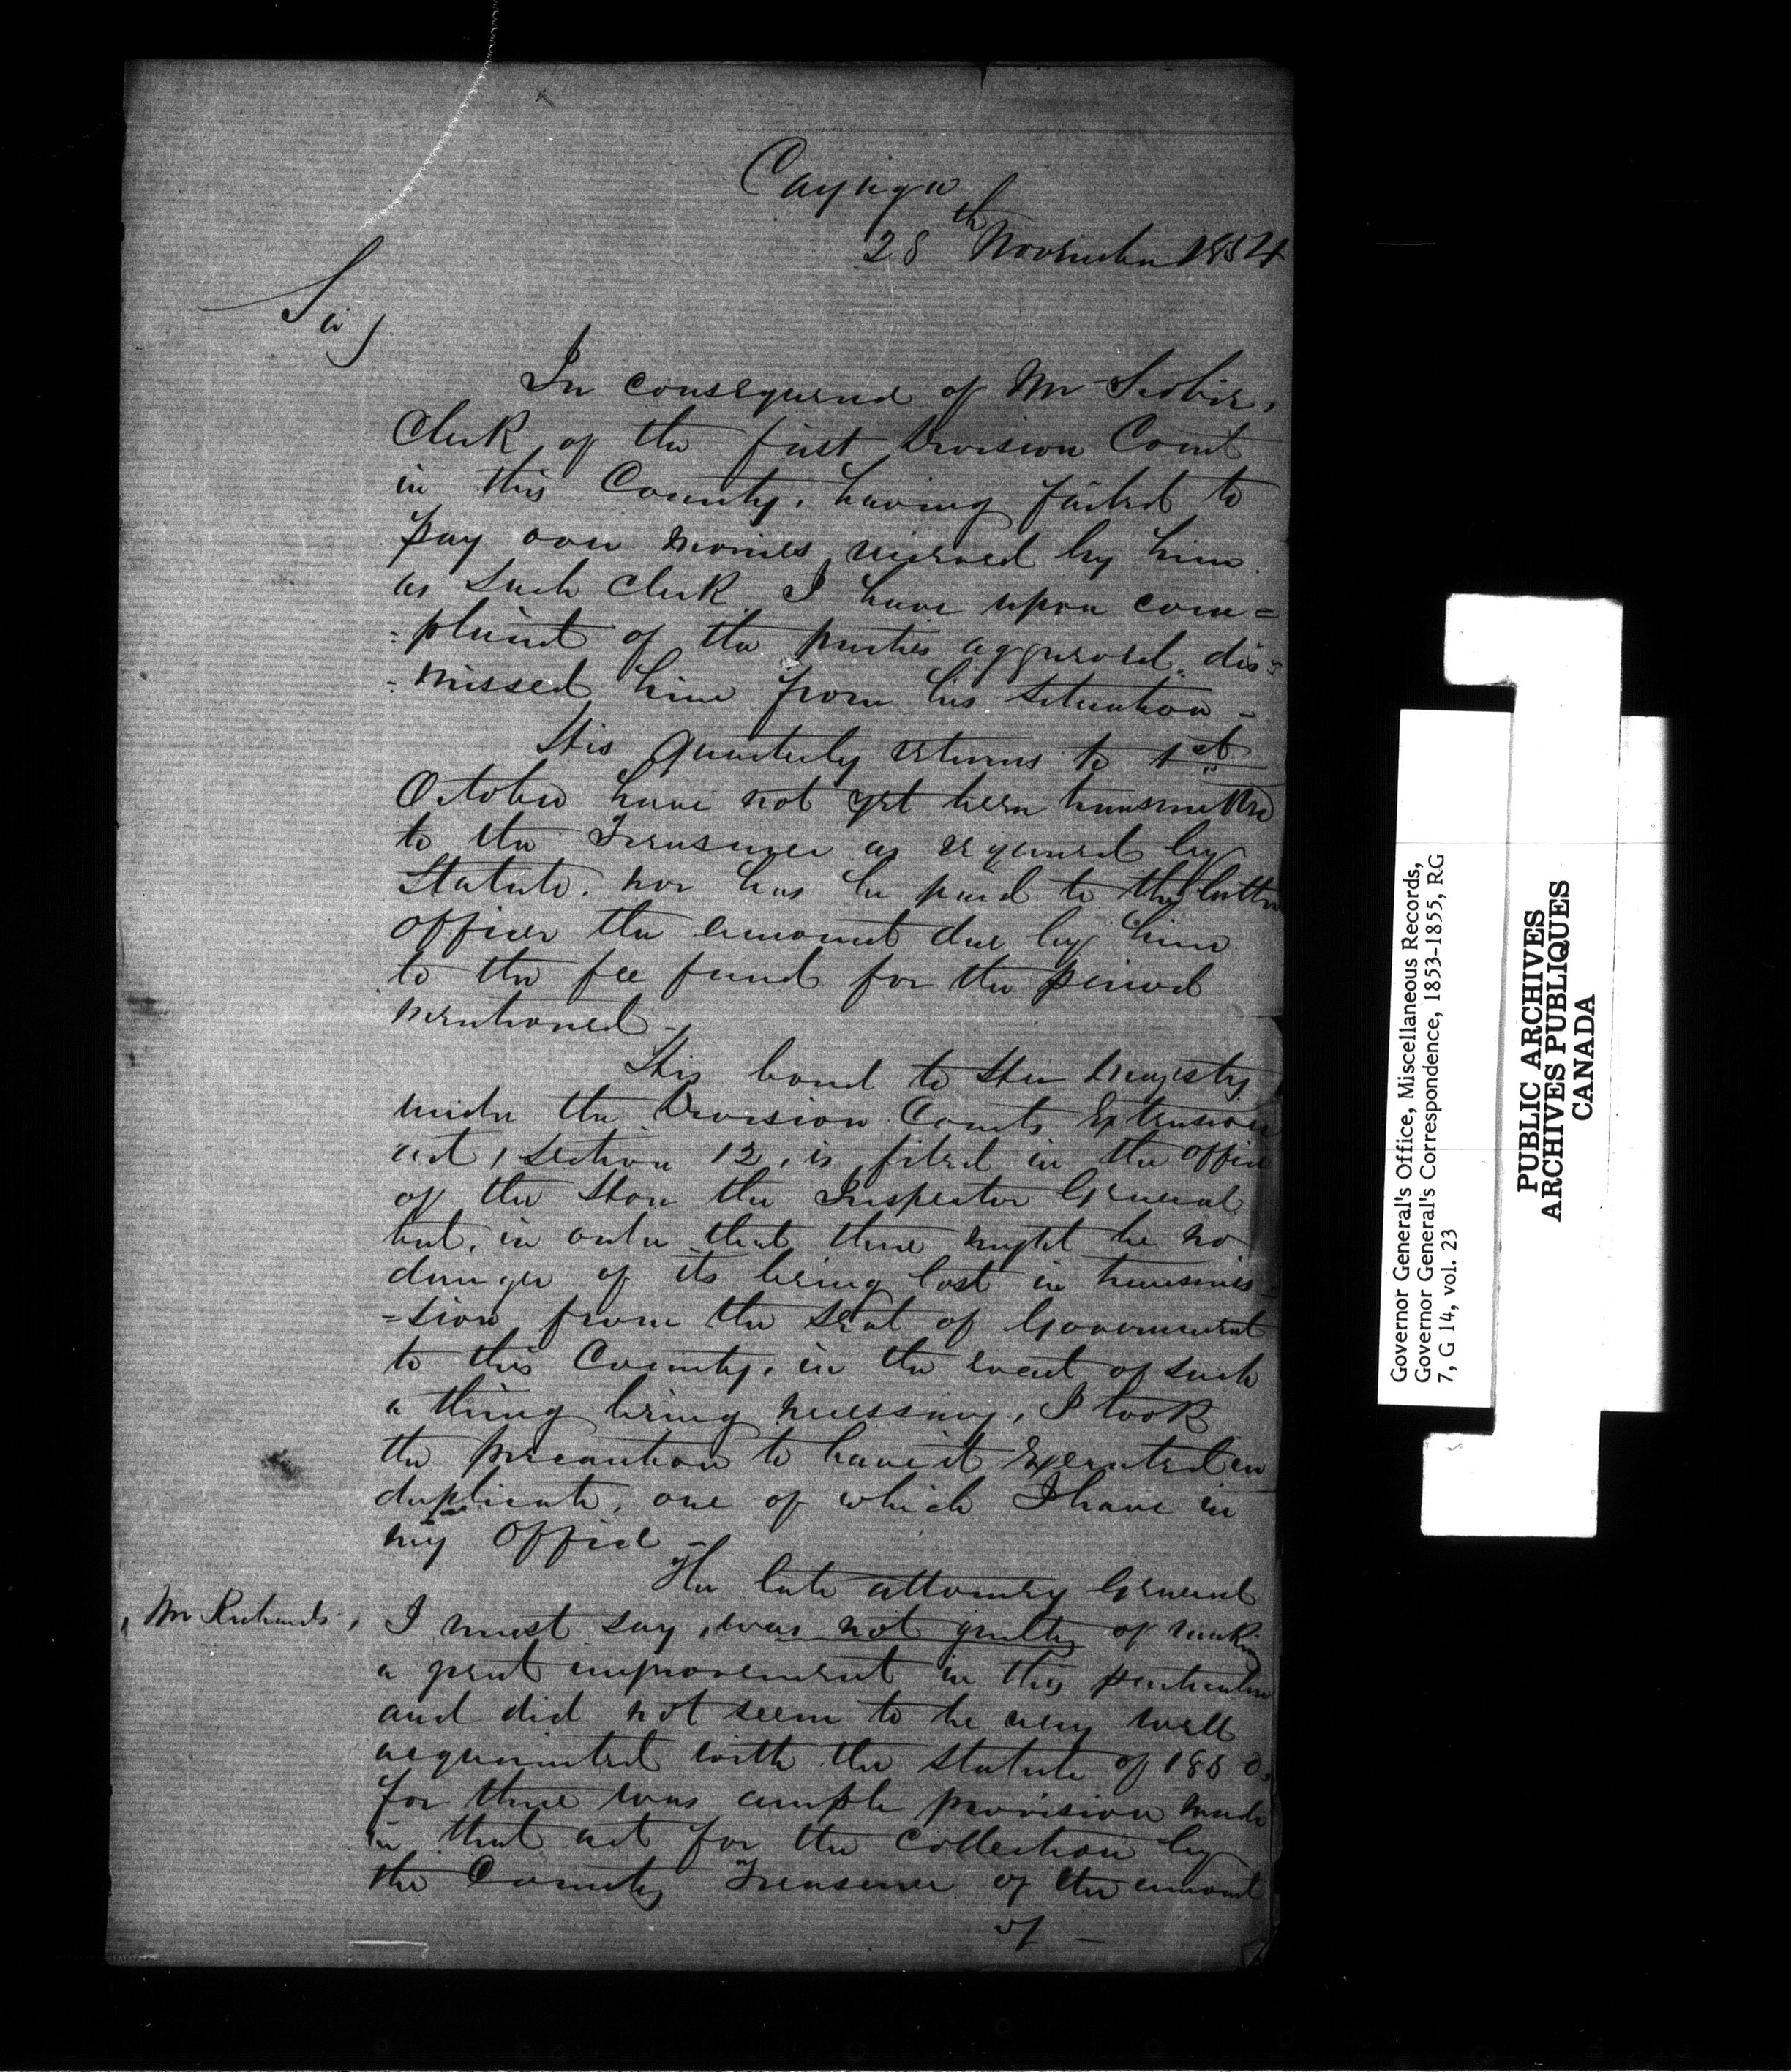 Cayuga
28th November 1854
Sir,
In consequence of Mr Scobie,
Clerk of the first Division Court
in this County, having failed to
pay over monies received by him
as such Clerk I have upon com=
=plaint of the parties aggrieved, dis=
=missed him from his situation -
His Quarterly returns to 1st
October have not yet been transmitted
to the Treasurer as required by
Statute. nor has he paid to the latter
officer the amount due by him
to the fee fund for the period
mentioned -
His bond to Her Majesty
under the Division Courts Extension
act, section 12, is filed in the office
of the Hon the Inspector General
but, in order that there might be no
danger of its being lost in transmis=
=sion from the Seat of Government
to this County, in the event of such
a thing being necessary, I took
the precaution to have it Executed in
duplicate, one of which I have in
my Office -
The late Attorney General
, Mr Richards, I must say, was not guilty of making
a great improvement in this particular
and did not seem to be very well
acquainted with the Statute of 1850,
for there was ample provision made
in that act for the Collection by
the County Treasurer of the amount
of -
Governor General's Office, Miscellaneous Records,
Governor General's Correspondence, 1853-1855, RG
7, G 14, vol. 23
PUBLIC ARCHIVES
ARCHIVES PUBLIQUES
CANADA